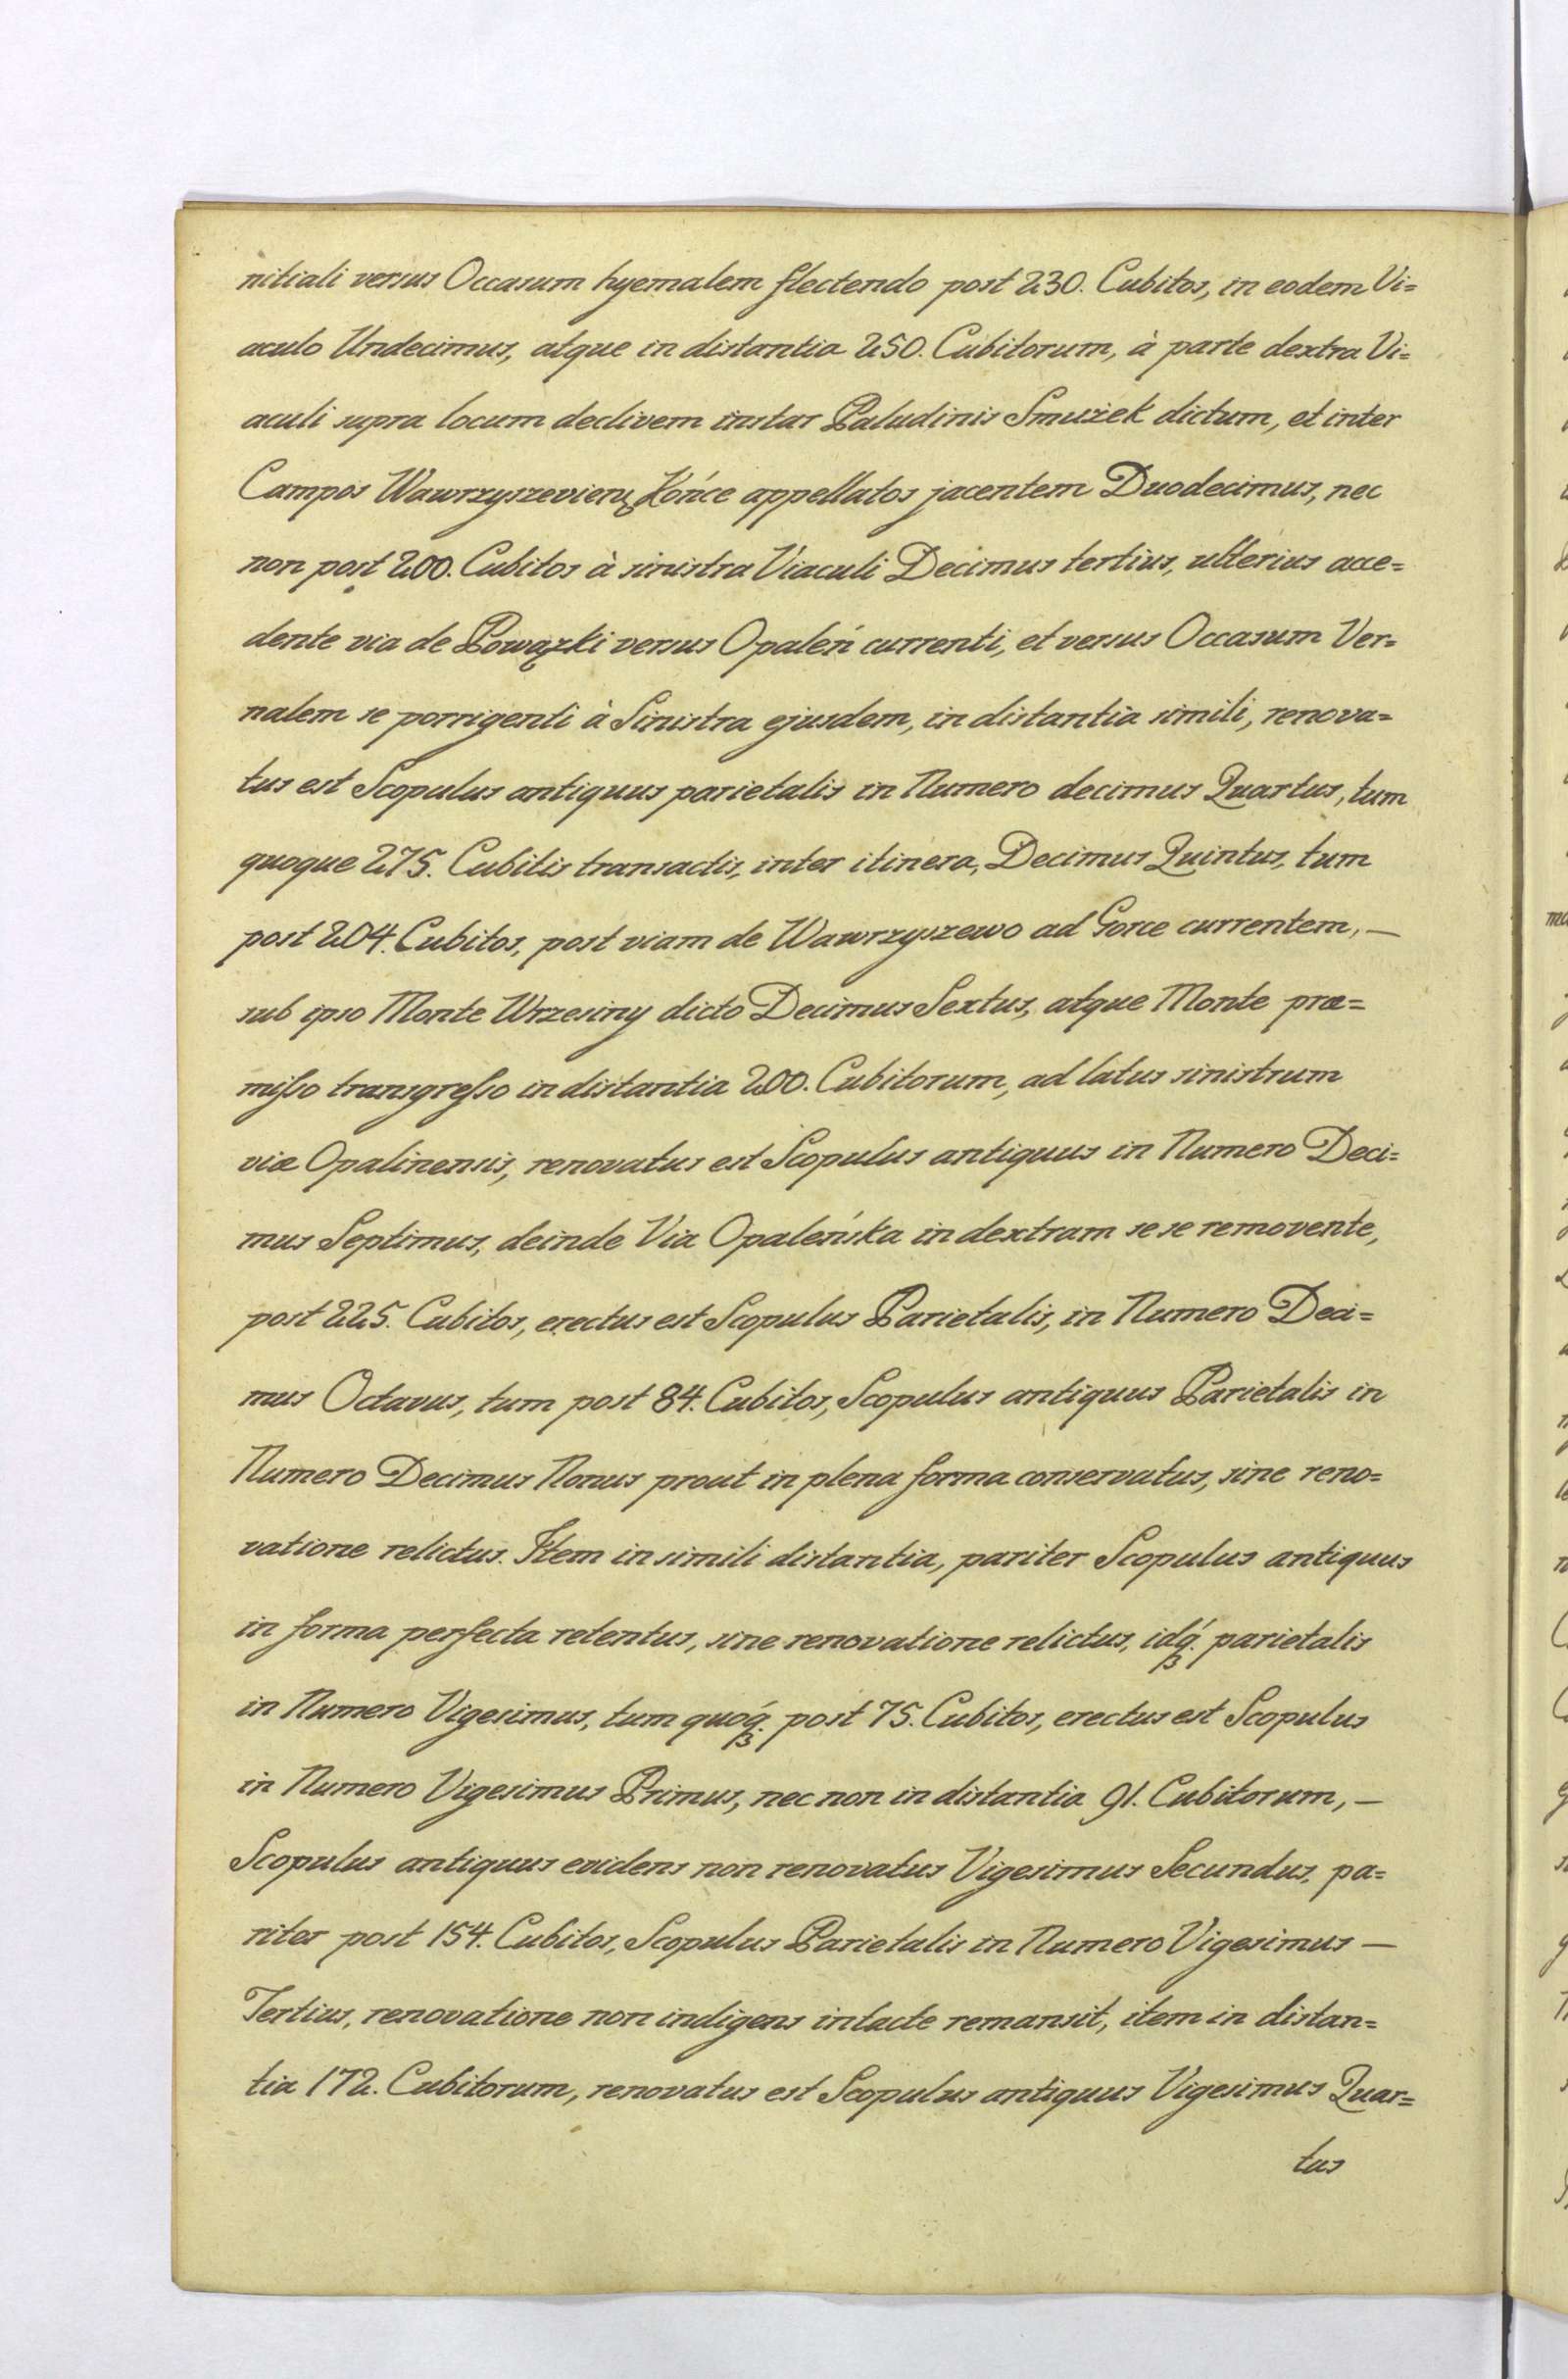 nitiali versus Occasum hyemalem flectendo post 230. Cubitos, in eodem Vi=
aculo Undecimus, atque in distantia 250. Cubitorum, à parte dextra Vi=
aculi supra locum declivem instar Paludinis Smużek dictum, et inter
Campos Wawrzyszevienꝫ Końce appellatos jacentem Duodecimus, nec
non post 200. Cubitos à sinistra Viaculi Decimus tertius, ulterius acce=
dente via de Powązki versus Opaleń currenti, et versus Occasum Ver=
nalem se porrigenti à Sinistra ejusdem, in distantia simili, renova=
tus est Scopulus antiquus parietalis in Numero decimus Quartus, tum
quoque 275. Cubitis transactis, inter itinera, Decimus Quintus, tum
post 204. Cubitos, post viam de Wawrzyszewo ad Gorce currentem, —
sub ipso Monte Wrzesiny dicto Decimus Sextus, atque Monte præ=
miſso transgreſso in distantia 200. Cubitorum, ad latus sinistrum
viæ Opalinensis, renovatus est Scopulus antiquus in Numero Deci=
mus Septimus, deinde Via Opaleńska in dextram se se removente,
post 225. Cubitos, erectus est Scopulus Parietalis, in Numero Deci=
mus Octavus, tum post 84. Cubitos, Scopulus antiquus Parietalis in
Numero Decimus Nonus prout in plena forma conservatus, sine reno=
vatione relictus. Item in simili distantia, pariter Scopulus antiquus
in forma perfecta retentus, sine renovatione relictus, idq́ꝫ. parietalis
in Numero Vigesimus, tum quoq́ꝫ. post 75. Cubitos, erectus est Scopulus
in Numero Vigesimus Primus, nec non in distantia 91. Cubitorum, —
Scopulus antiquus evidens non renovatus Vigesimus Secundus, pa=
riter post 154. Cubitos, Scopulus Parietalis in Numero Vigesimus —
Tertius, renovatione non indigens intacte remansit, item in distan=
tia 172. Cubitorum, renovatus est Scopulus antiquus Vigesimus Quar=
tus